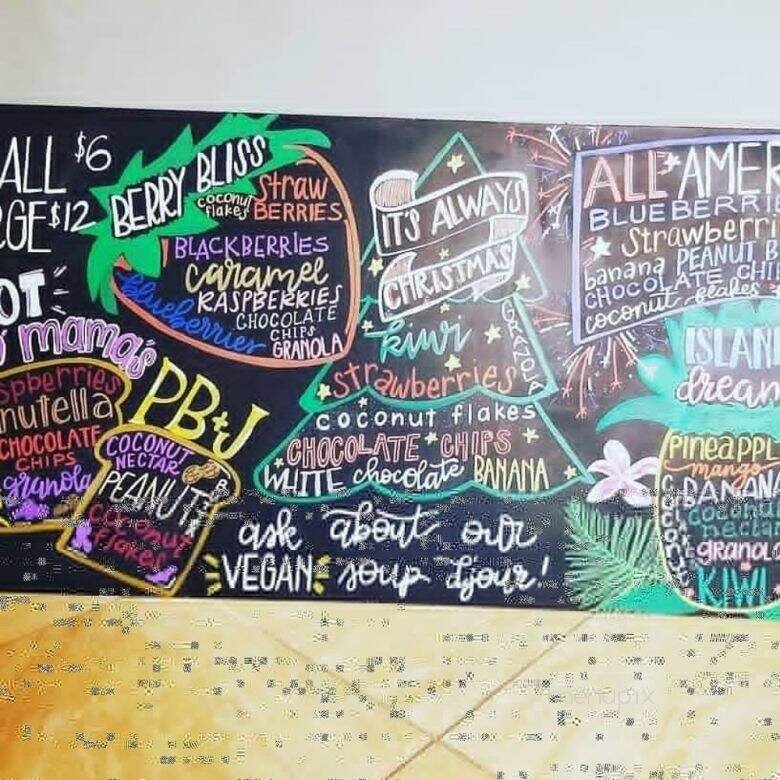 ALL $6
RGE $12
OT
mama's
spberries
nutella
CHOCOLATE
CHIPS
granola
BERRY BLISS
coconut
flakes
straw
BERRIES
BLACKBERRIES
caramel
RASPBERRIES
Blueberries
CHOCOLATE
CHIPS
GRANOLA
PB+J
COCONUT
NECTAR
PEANUT
coconut
flakes
IT'S ALWAYS
CHRISTMAS
kiwi
GRANOLA
strawberries
coconut flakes
CHOCOLATE CHIPS
WHITE chocolate BANANA
ask about our
VEGAN soup d'jour!
ALL AMER
BLUEBERRI
Strawberri
banana PEANUT B
CHOCOLATE CHIP
coconut flakes
ISLAN
dream
PINEAPPL
mango
BANANA
coconut
necta
granola
KIWI
menupix